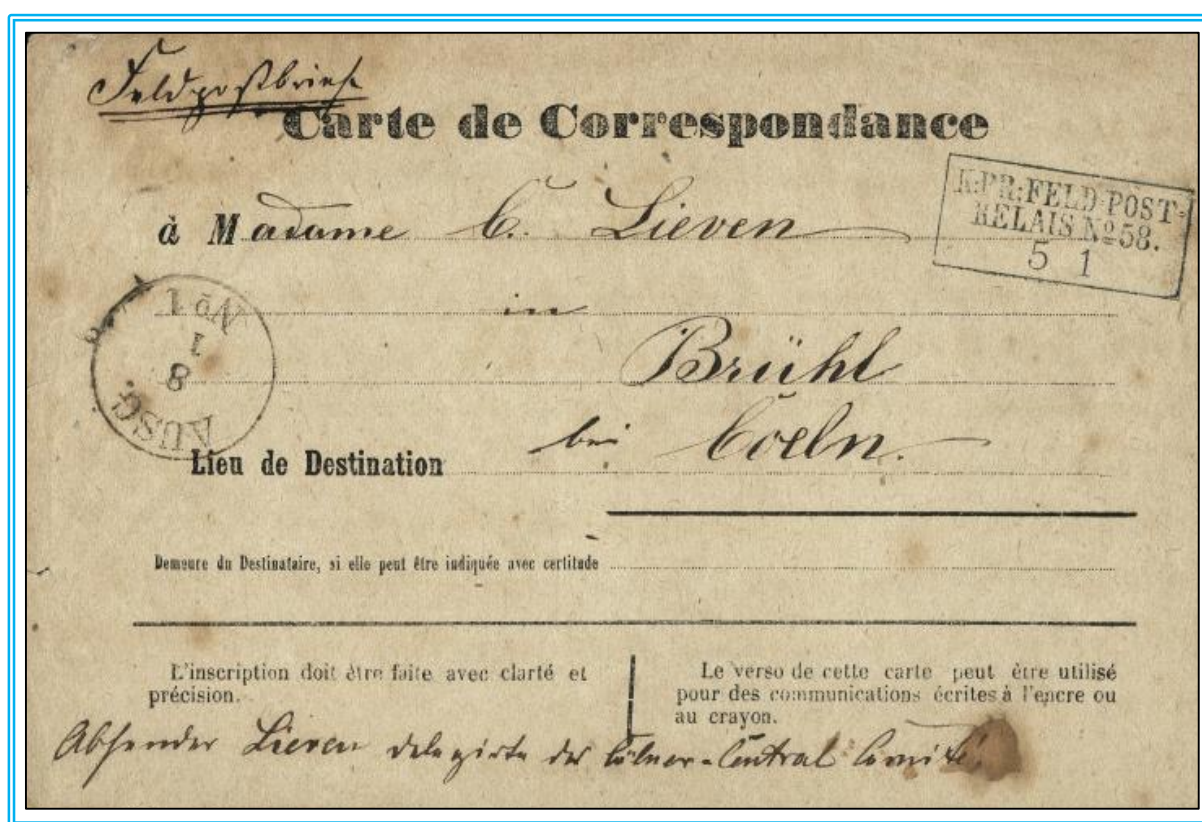 Feldpostbrief
Carte de Correspondance
à Madame C. Lieven
K:PR:FELD-POST-
RELAIS No 58.
5 1
in
Brühl
bei Coeln.
No 1
1
8
AUSG.
Lieu de Destination
Demeure du Destinataire, si elle peut être indiquée avec certitude
L'inscription doit être faite avec clarté et
précision.
Le verso de cette carte peut être utilisé
pour des communications écrites à l'encre ou
au crayon.
Absender Lieven delegirter des Cölner-Central Comité.